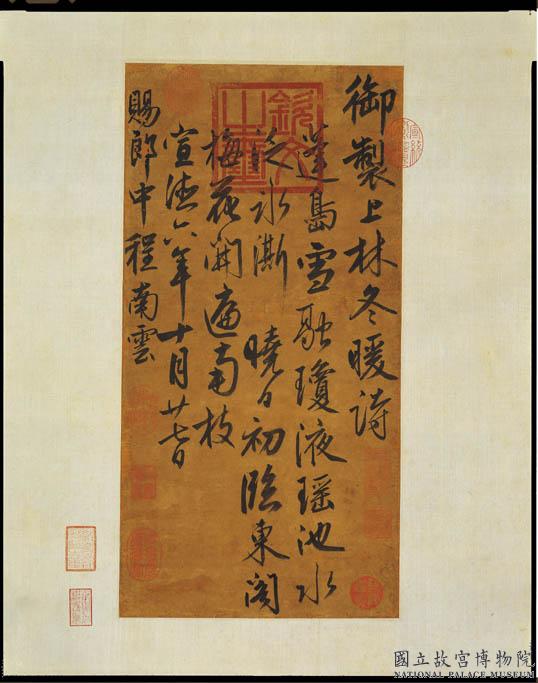 御製上林冬暖詩
蓬島雪融瓊液瑤池水
泛冰澌 曉日初臨東閣
梅花開遍南枝
宣德六年十月廿七日
賜郎中程南雲
欽文之璽
國立故宮博物院
NATIONAL PALACE MUSEUM